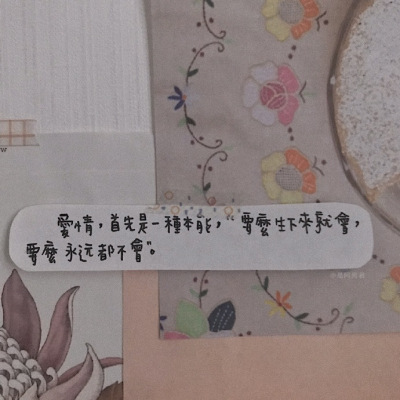 愛情，首先是一種本能，“要麼生下來就會，
要麼永远都不會”。